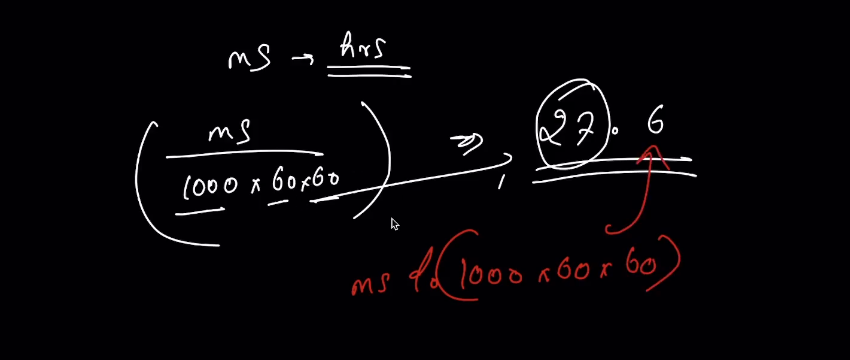 ms → hrs
ms
1000 x 60 x 60
⇒ 27.6
ms % (1000 x 60 x 60)